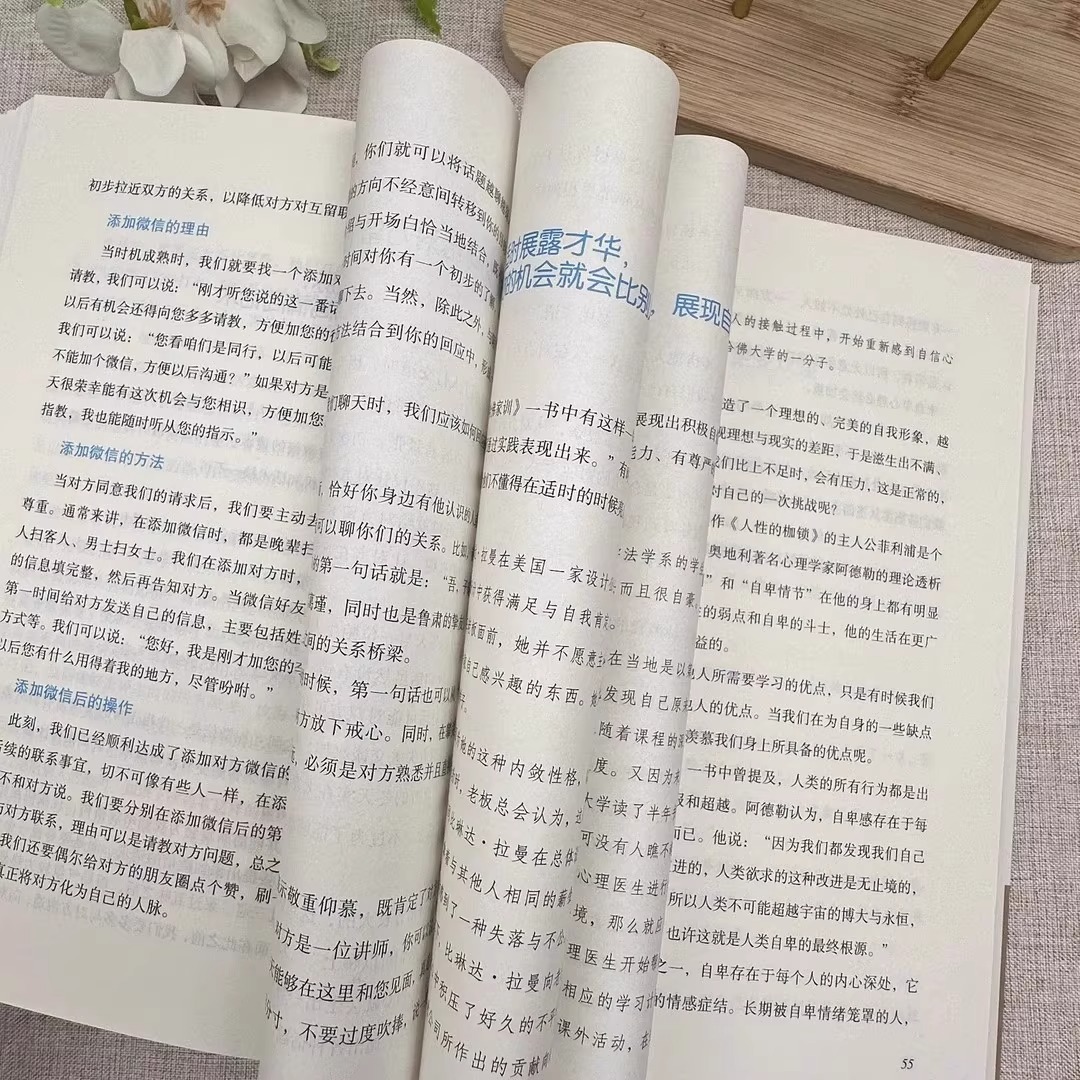 初步拉近双方的关系，以降低对方对互留联
添加微信的理由
当时机成熟时，我们就要找一个添加对
请教，我们可以说：“刚才听您说的这一番话
以后有机会还得向您多多请教，方便加您的
我们可以说：“您看咱们是同行，以后可能
不能加个微信，方便以后沟通？”如果对方是
天很荣幸能有这次机会与您相识，方便加您
指教，我也能随时听从您的指示。”
添加微信的方法
当对方同意我们的请求后，我们要主动去
尊重。通常来讲，在添加微信时，都是晚辈扫
人扫客人、男士扫女士。我们在添加对方时，
的信息填完整，然后再告知对方。当微信好友
第一时间给对方发送自己的信息，主要包括姓
方式等。我们可以说：“您好，我是刚才加您的
以后您有什么用得着我的地方，尽管吩咐。”
添加微信后的操作
此刻，我们已经顺利达成了添加对方微信的
后续的联系事宜，切不可像有些人一样，在添
不和对方说。我们要分别在添加微信后的第
与对方联系，理由可以是请教对方问题，总之
我们还要偶尔给对方的朋友圈点个赞，刷
真正将对方化为自己的人脉。
，你们就可以将话题越聊越
的方向不经意间转移到你的
相与开场白恰当地结合，既
时间对你有一个初步的了解
下去。当然，除此之外，与
法结合到你的回应中，形
们聊天时，我们应该如何回
，恰好你身边有他认识的人
可以聊你们的关系。比如
的第一句话就是：“吾，子
谨，同时也是鲁肃的挚
间的关系桥梁。
时候，第一句话也可以
方放下戒心。同时，在聊
，必须是对方熟悉并且
示敬重仰慕，既肯定了对
对方是一位讲师，你可以
不能够在这里和您见面，
分寸，不要过度吹捧，说
时展露才华，
的机会就会比别
家训》一书中有这样一
过实践表现出来。”有
们不懂得在适时的时候
·拉曼在美国一家设计
中获得满足与自我肯
面前，她并不愿意
自己感兴趣的东西。她
她的这种内敛性格，
，老板总会认为，这
琳达·拉曼在总体
与其他人相同的薪
到了一种失落与不公
，比琳达·拉曼向老
中积压了好久的不平
公司所作出的贡献向
展现自
展现出积极自
能力、有尊严
法学系的学
而且很自豪
在当地是以
发现自己原
随着课程的
度。又因为
大学读了半年
可没有人瞧不
心理医生进行
境，那么就应
理医生开始帮
相应的学习计
课外活动，在
人的接触过程中，开始重新感到自信心
哈佛大学的一分子。
造了一个理想的、完美的自我形象，越
见理想与现实的差距，于是滋生出不满、
我们比上不足时，会有压力，这是正常的，
对自己的一次挑战呢？
作《人性的枷锁》的主人公菲利浦是个
奥地利著名心理学家阿德勒的理论透析
”和“自卑情节”在他的身上都有明显
的弱点和自卑的斗士，他的生活在更广
益的。
人所需要学习的优点，只是有时候我们
他人的优点。当我们在为自身的一些缺点
羡慕我们身上所具备的优点呢。
一书中曾提及，人类的所有行为都是出
和超越。阿德勒认为，自卑感存在于每
而已。他说：“因为我们都发现我们自己
进的，人类欲求的这种改进是无止境的，
所以人类不可能超越宇宙的博大与永恒，
也许这就是人类自卑的最终根源。”
之一，自卑存在于每个人的内心深处，它
的情感症结。长期被自卑情绪笼罩的人，
55